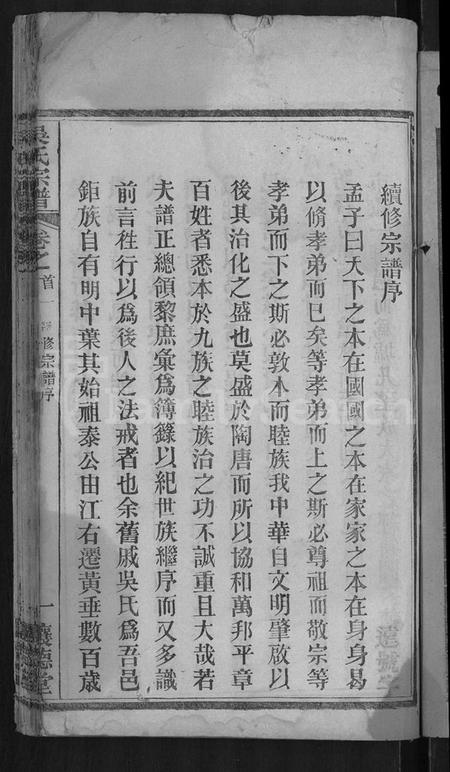 續修宗譜序
孟子曰天下之本在國國之本在家家之本在身身曷
以脩孝弟而已矣等孝弟而上之斯必尊祖而敬宗等
孝弟而下之斯必敦本而睦族我中華自文明肇啟以
後其治化之盛也莫盛於陶唐而所以協和萬邦平章
百姓者悉本於九族之睦族治之功不誠重且大哉若
夫譜正總領黎庶彙為簿籙以紀世族繼序而又多識
前言徃行以為後人之法戒者也余舊戚吳氏為吾邑
鉅族自有明中葉其始祖泰公由江右遷黃垂數百歲
吳氏宗譜
卷之首
修宗譜序
一
德堂